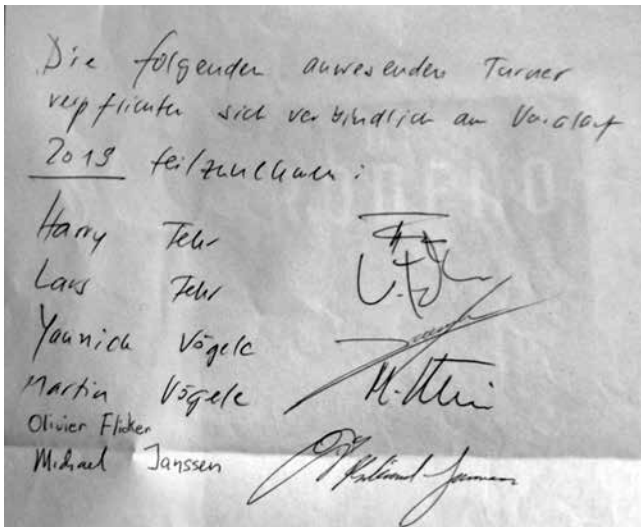 Die folgenden anwesenden Turner
verpflichten sich verbindlich am Vorlauf
2019 teilzunehmen:
Harry Fehr
Lars Fehr
Yannick Vögele
Martin Vögele
Olivier Flicker
Michael Janssen